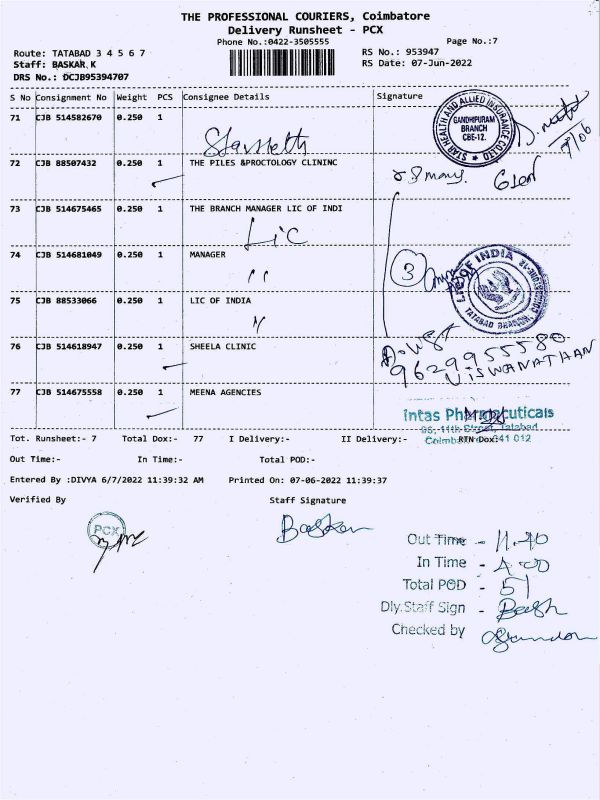 THE PROFESSIONAL COURIERS, Coimbatore
Delivery Runsheet - PCX
Phone No.:0422-3505555
Page No.:7
Route: TATABAD 3 4 5 6 7
RS No.: 953947
Staff: BASKAR K
RS Date: 07-Jun-2022
DRS No.: DCJB95394707
S No Consignment No Weight PCS Consignee Details Signature
71 CJB 514582670 0.250 1
STAR HEALTH AND ALLIED INSURANCE CO.LTD
GANDHIPURAM
BRANCH
CBE-12.
72 CJB 88507432 0.250 1 THE PILES &PROCTOLOGY CLININC
73 CJB 514675465 0.250 1 THE BRANCH MANAGER LIC OF INDI
LIC
74 CJB 514681049 0.250 1 MANAGER
3
LIC OF INDIA
TATABAD BRANCH
75 CJB 88533066 0.250 1 LIC OF INDIA
76 CJB 514618947 0.250 1 SHEELA CLINIC
9629955580
VISWANATHAN
77 CJB 514675558 0.250 1 MEENA AGENCIES
Intas Pharmaceuticals
95, 11th Street, Tatabad
Tot. Runsheet:- 7 Total Dox:- 77 I Delivery:- II Delivery:- RTN Dox:-
Coimbatore-641 012
Out Time:- In Time:- Total POD:-
Entered By :DIVYA 6/7/2022 11:39:32 AM Printed On: 07-06-2022 11:39:37
Verified By Staff Signature
PCX
Baskar
Out Time - 11.40
In Time - 4.00
Total POD - 51
Dly.Staff Sign -
Checked by